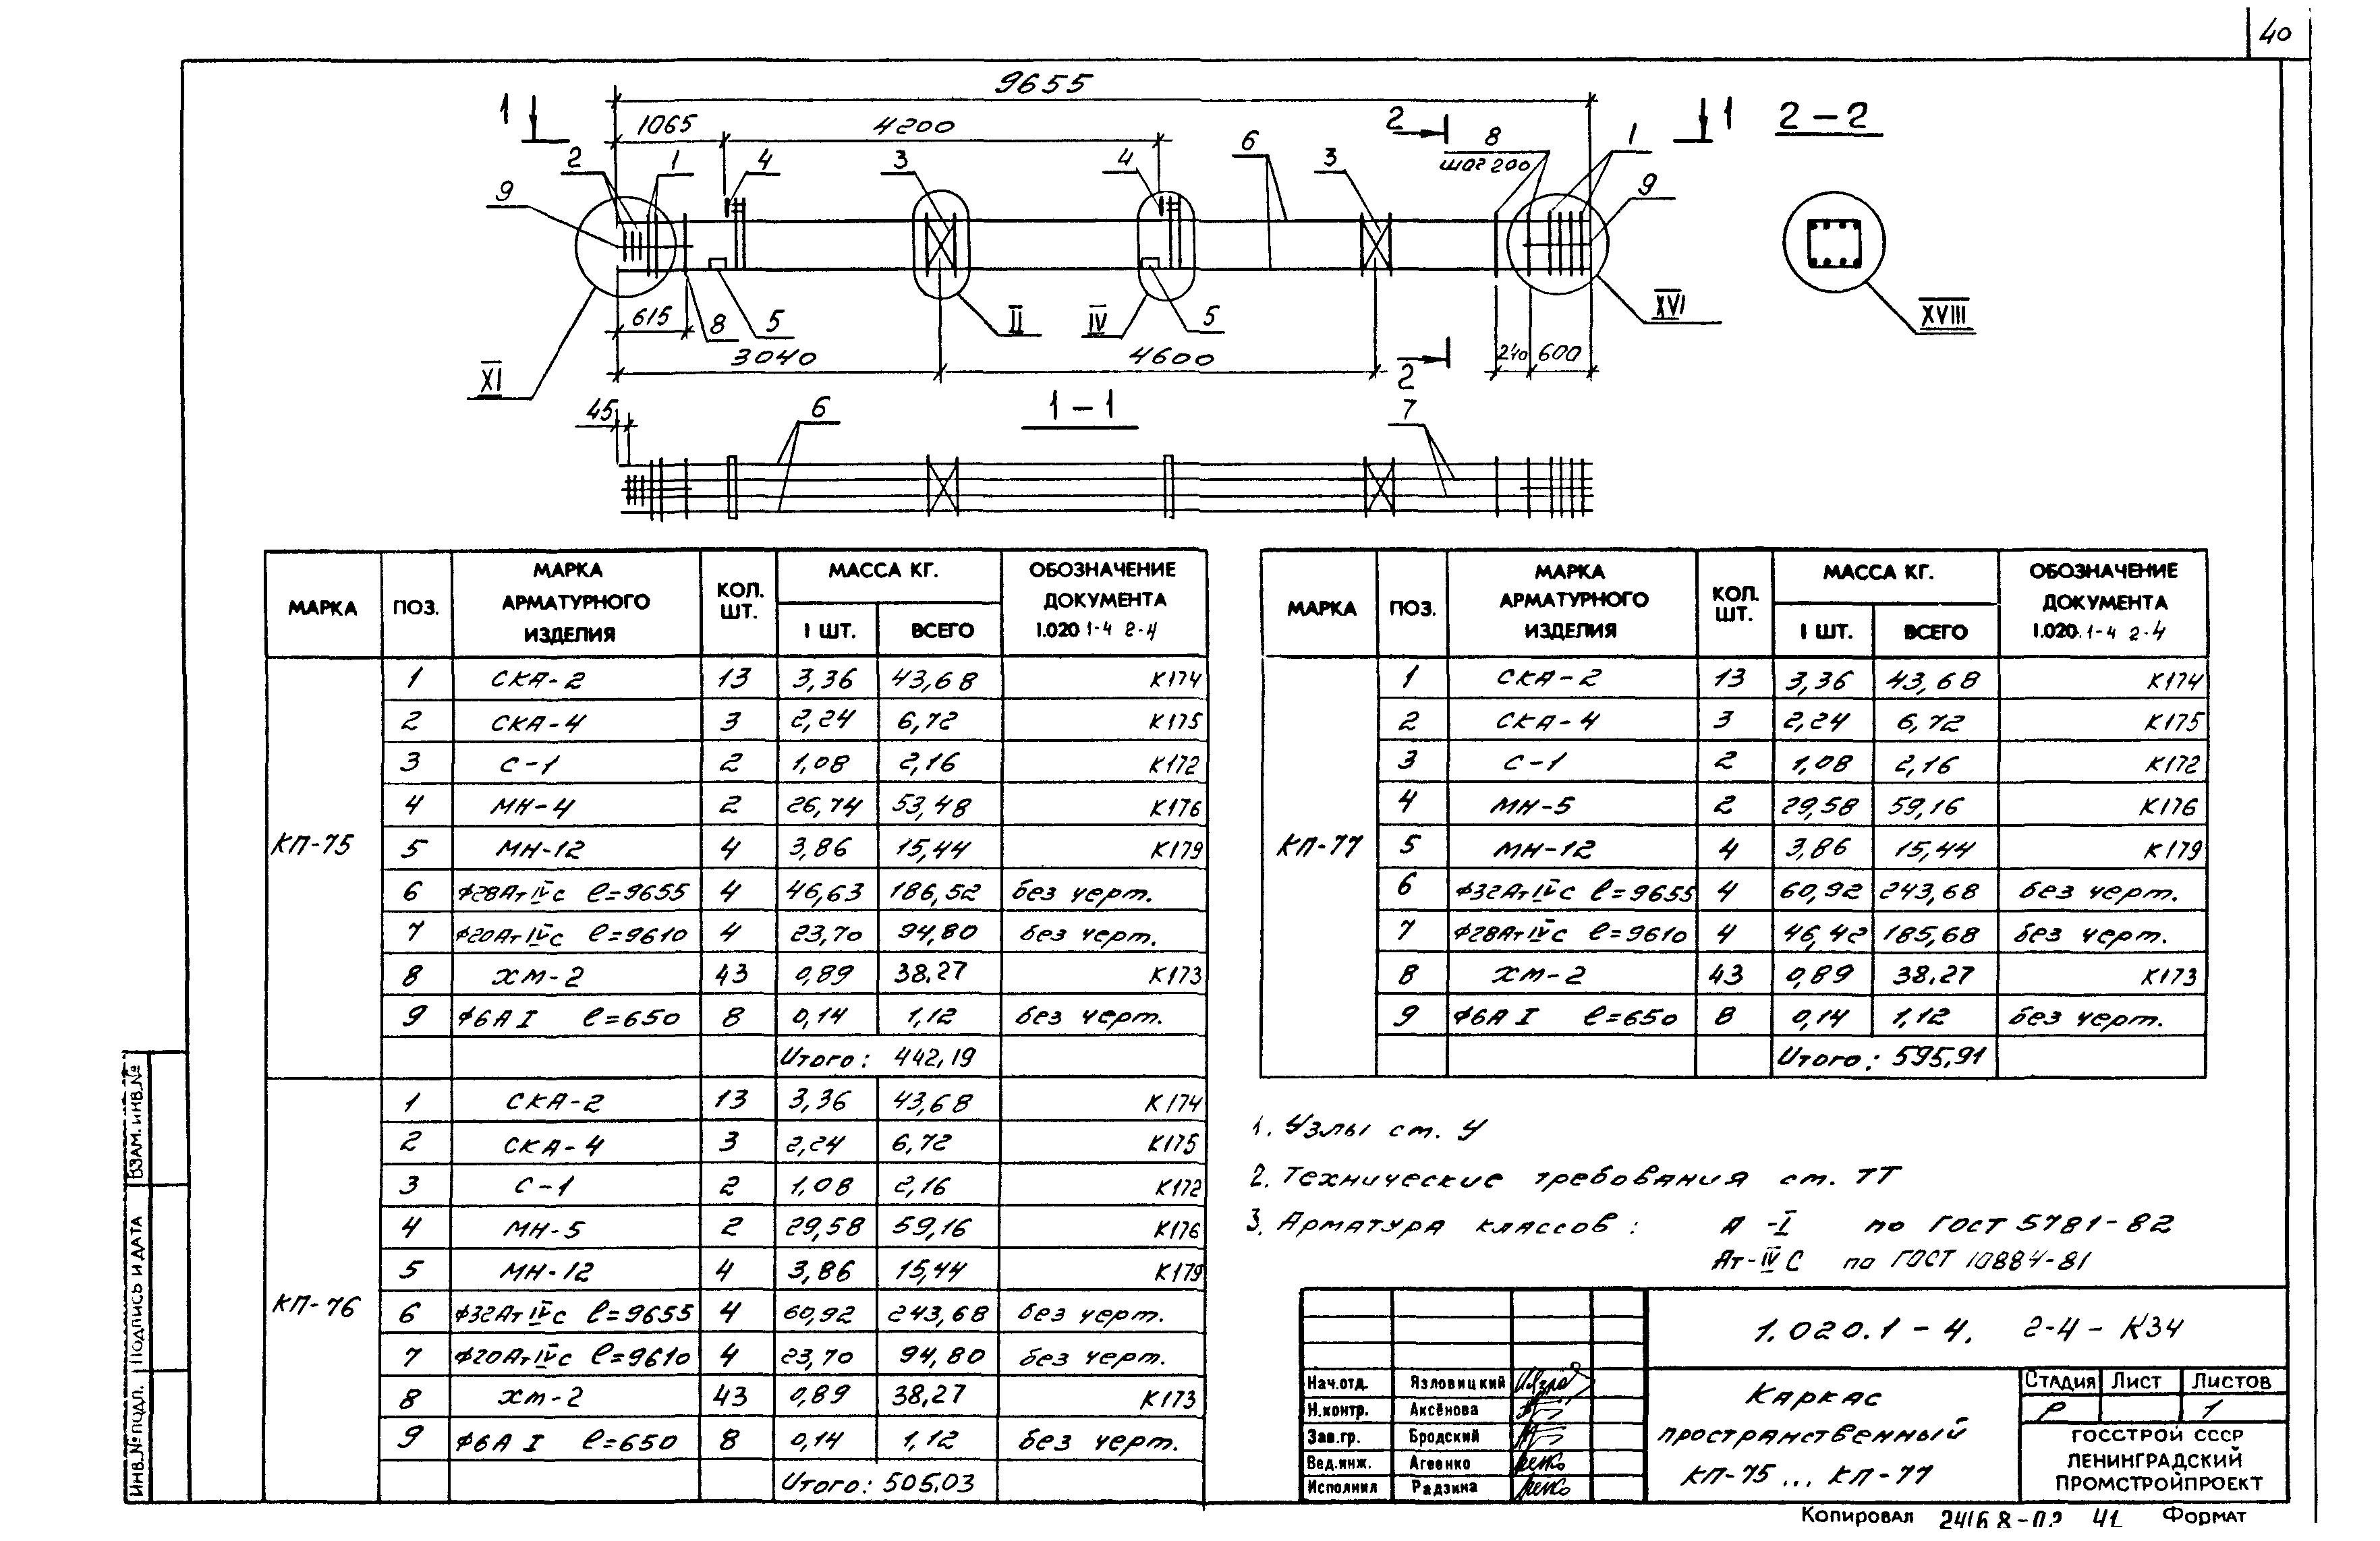 40
9655
1 1065 4200 2 8 1 1 2-2
2 1 4 3 4 6 3 шаг 200
9 9
615 8 5 II IV 5 XVI XVIII
XI 3040 4600 2 240 600
45 6 1-1 7
МАРКА ПОЗ. МАРКА АРМАТУРНОГО ИЗДЕЛИЯ КОЛ. ШТ. МАССА КГ. 1 ШТ. ВСЕГО ОБОЗНАЧЕНИЕ ДОКУМЕНТА 1.020 1-4 2-4
КП-75
1 СКА-2 13 3,36 43,68 К174
2 СКА-4 3 2,24 6,72 К175
3 С-1 2 1,08 2,16 К172
4 МН-4 2 26,74 53,48 К176
5 МН-12 4 3,86 15,44 К179
6 Ф28АтIVС ℓ=9655 4 46,63 186,52 без черт.
7 Ф20АтIVС ℓ=9610 4 23,70 94,80 без черт.
8 ХМ-2 43 0,89 38,27 К173
9 Ф6А I ℓ=650 8 0,14 1,12 без черт.
Итого: 442,19
КП-76
1 СКА-2 13 3,36 43,68 К174
2 СКА-4 3 2,24 6,72 К175
3 С-1 2 1,08 2,16 К172
4 МН-5 2 29,58 59,16 К176
5 МН-12 4 3,86 15,44 К179
6 Ф32АтIVС ℓ=9655 4 60,92 243,68 без черт.
7 Ф20АтIVС ℓ=9610 4 23,70 94,80 без черт.
8 ХМ-2 43 0,89 38,27 К173
9 Ф6А I ℓ=650 8 0,14 1,12 без черт.
Итого: 505,03
МАРКА ПОЗ. МАРКА АРМАТУРНОГО ИЗДЕЛИЯ КОЛ. ШТ. МАССА КГ. 1 ШТ. ВСЕГО ОБОЗНАЧЕНИЕ ДОКУМЕНТА 1.020.1-4 2-4
КП-77
1 СКА-2 13 3,36 43,68 К174
2 СКА-4 3 2,24 6,72 К175
3 С-1 2 1,08 2,16 К172
4 МН-5 2 29,58 59,16 К176
5 МН-12 4 3,86 15,44 К179
6 Ф32АтIVС ℓ=9655 4 60,92 243,68 без черт.
7 Ф28АтIVС ℓ=9610 4 46,42 185,68 без черт.
8 ХМ-2 43 0,89 38,27 К173
9 Ф6А I ℓ=650 8 0,14 1,12 без черт.
Итого: 595,91
1. Узлы см. У
2. Технические требования см. ТТ
3. Арматура классов: А-I по ГОСТ 5781-82
Ат-IVС по ГОСТ 10884-81
1.020.1-4. 2-4-К34
Нач.отд. Язловицкий
Н.контр. Аксёнова
Зав.гр. Бродский
Вед.инж. Агеенко
Исполнил Радзина
Каркас
пространственный
КП-75... КП-77
Стадия Лист Листов
Р 1
ГОССТРОЙ СССР
ЛЕНИНГРАДСКИЙ
ПРОМСТРОЙПРОЕКТ
Копировал 24168-02 41 Формат
Взам. инв.№
Подпись и дата
Инв.№ подл.